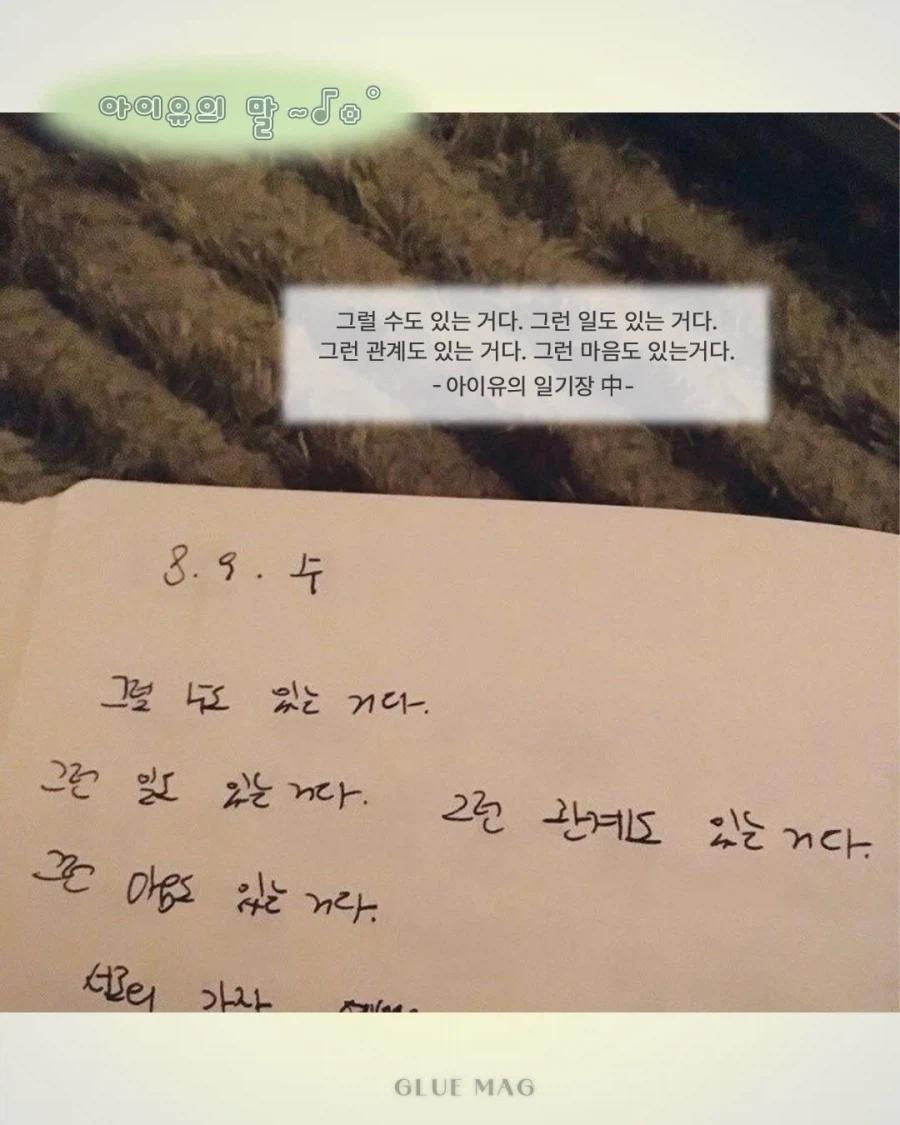 아이유의 말~♪
그럴 수도 있는 거다. 그런 일도 있는 거다.
그런 관계도 있는 거다. 그런 마음도 있는거다.
-아이유의 일기장 中-
8. 9. 수
그럴 수도 있는 거다.
그런 일도 있는 거다. 그런 관계도 있는 거다.
그런 마음도 있는 거다.
서로의 가장
GLUE MAG